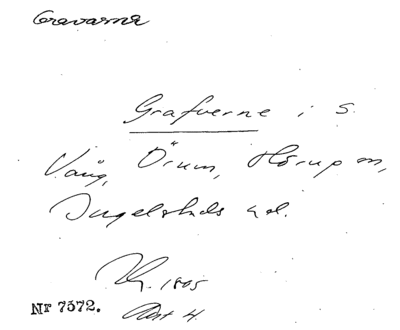 Gravarna
Grafverne i S.
Vång, Örum, Hörup m,
Ingelstads hd.
1805
Nr 7572. Akt 4.